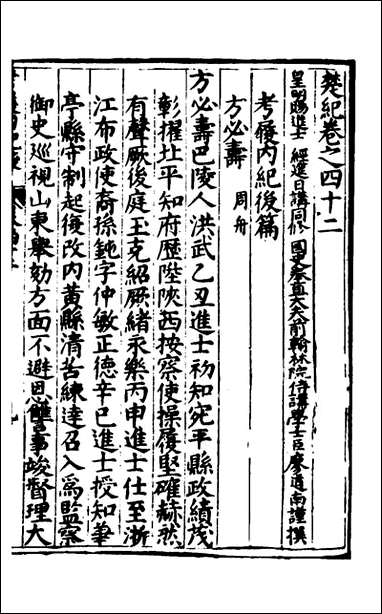 楚紀卷之四十二
皇明賜進士 經筵日講同修 國史奉直大夫前翰林院侍講學士臣廖道南謹撰
考履內紀後篇
方必壽 周舟
方必壽巴陵人洪武乙丑進士初知宛平縣政績茂
彰擢北平知府歷陞陝西按察使操履堅確赫然
有聲厥後庭玉克紹厥緒永樂丙申進士仕至浙
江布政使裔孫鈍字仲敏正德辛巳進士授知華
亭縣守制起復改內黃縣清苦練達召入為監察
御史巡視山東舉劾方面不避恩讎事竣督理大